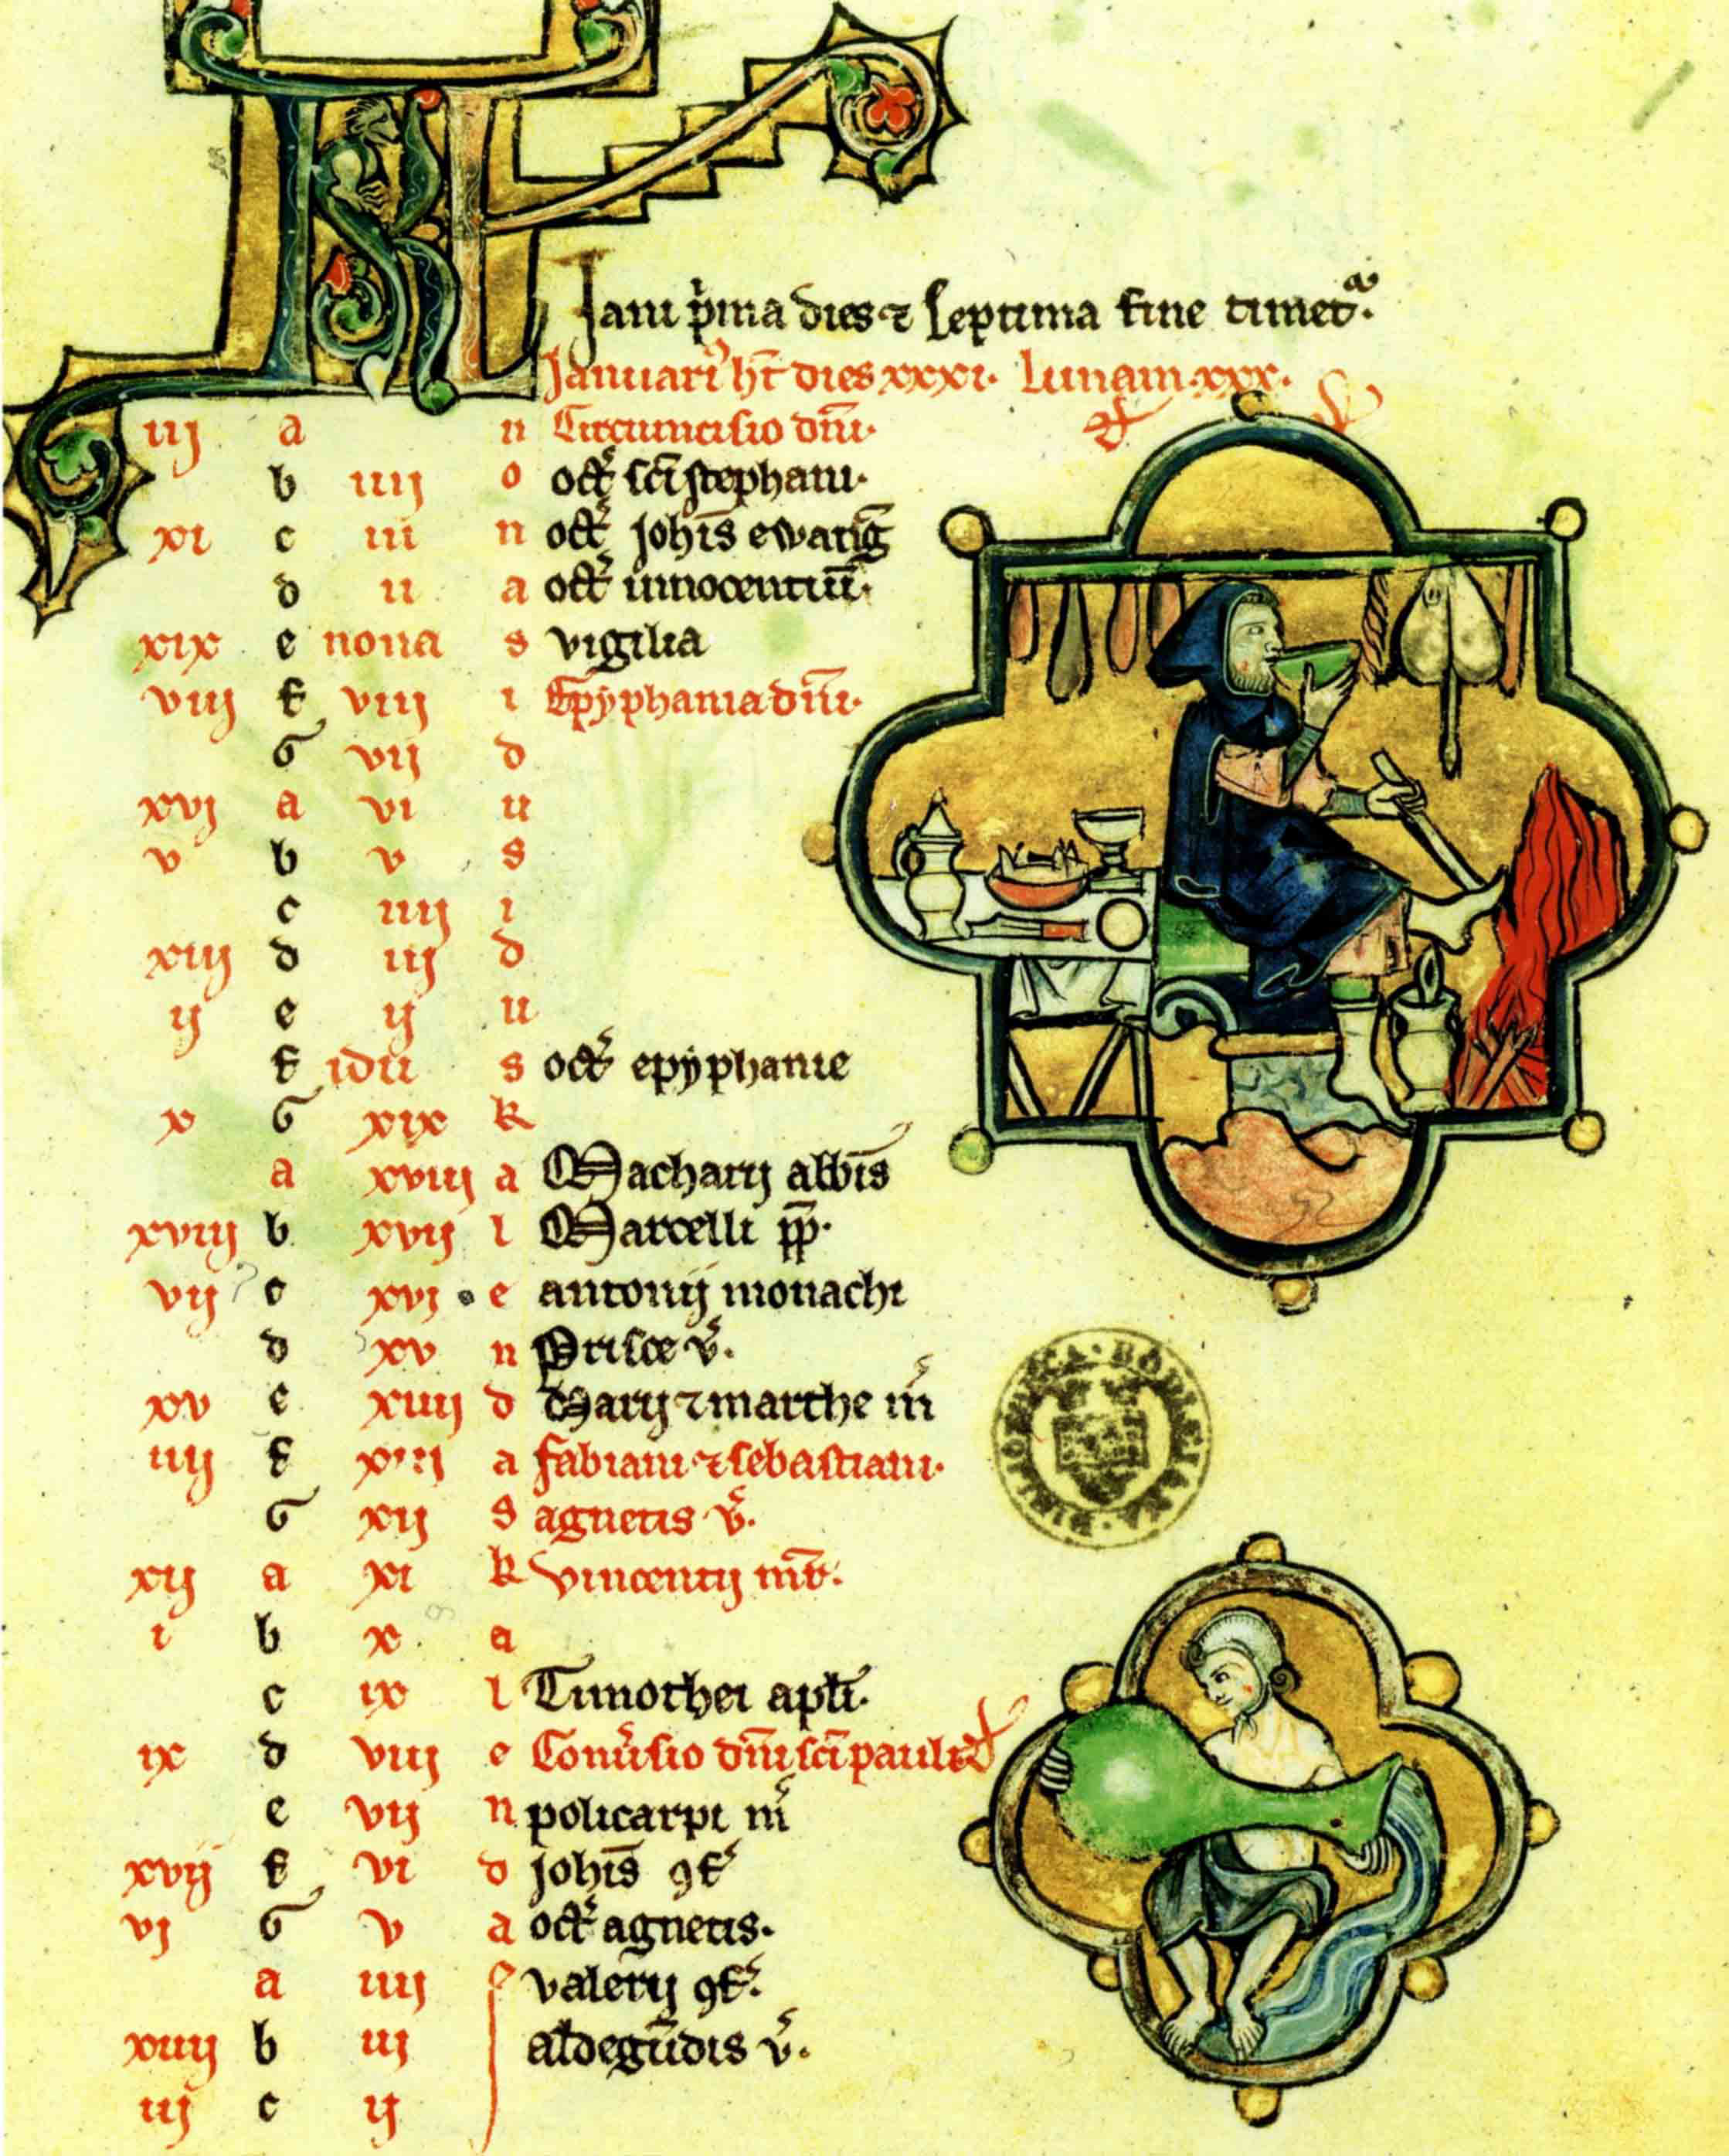 KL
Jani p̄ma dies ⁊ septima fine timet᷑.
Januari᷒ hт̄ dies xxxi. Lunam. xxx.
iij a n Circumcisio dn̄i.
b iiij o oct᷑ sc̄i stephani.
xi c iii n oct᷑ johīs ewanḡ
d ii a oct᷑ innocentiū.
xix e nona s vigilia
viij f viij i Epyphania dn̄i.
G vij d
xvj a vi u
v b v s
c iiij i
xiij d iij d
ij e ij u
f idu s oct᷑ epyphanie
x G xix k
a xviij a Macharij abb̄is
xviij b xvij l Marcelli pp̄.
vij c xvj e antonij monachi
d xv n Prisce v᷑.
xv e xiiij d Marij ⁊ marthe m̄
iiij f xiij a fabiani ⁊ sebastiani.
G xij s agnetis v᷑.
xij a xi k vincentij mr̄.
i b x a
c ix l Timothei apl̄i.
ix d viij e Conv᷑sio dn̄i sc̄i pauli
e vij n policarpi m᷑
xvij f vi d johīs ꝯf᷑
vj G v a oct᷑ agnetis.
a iiij s valerij ꝯf᷑.
xiiij b iij aldegūdis v᷑.
iij c ij
BIBLIOTHECA · BODLEIANA ·